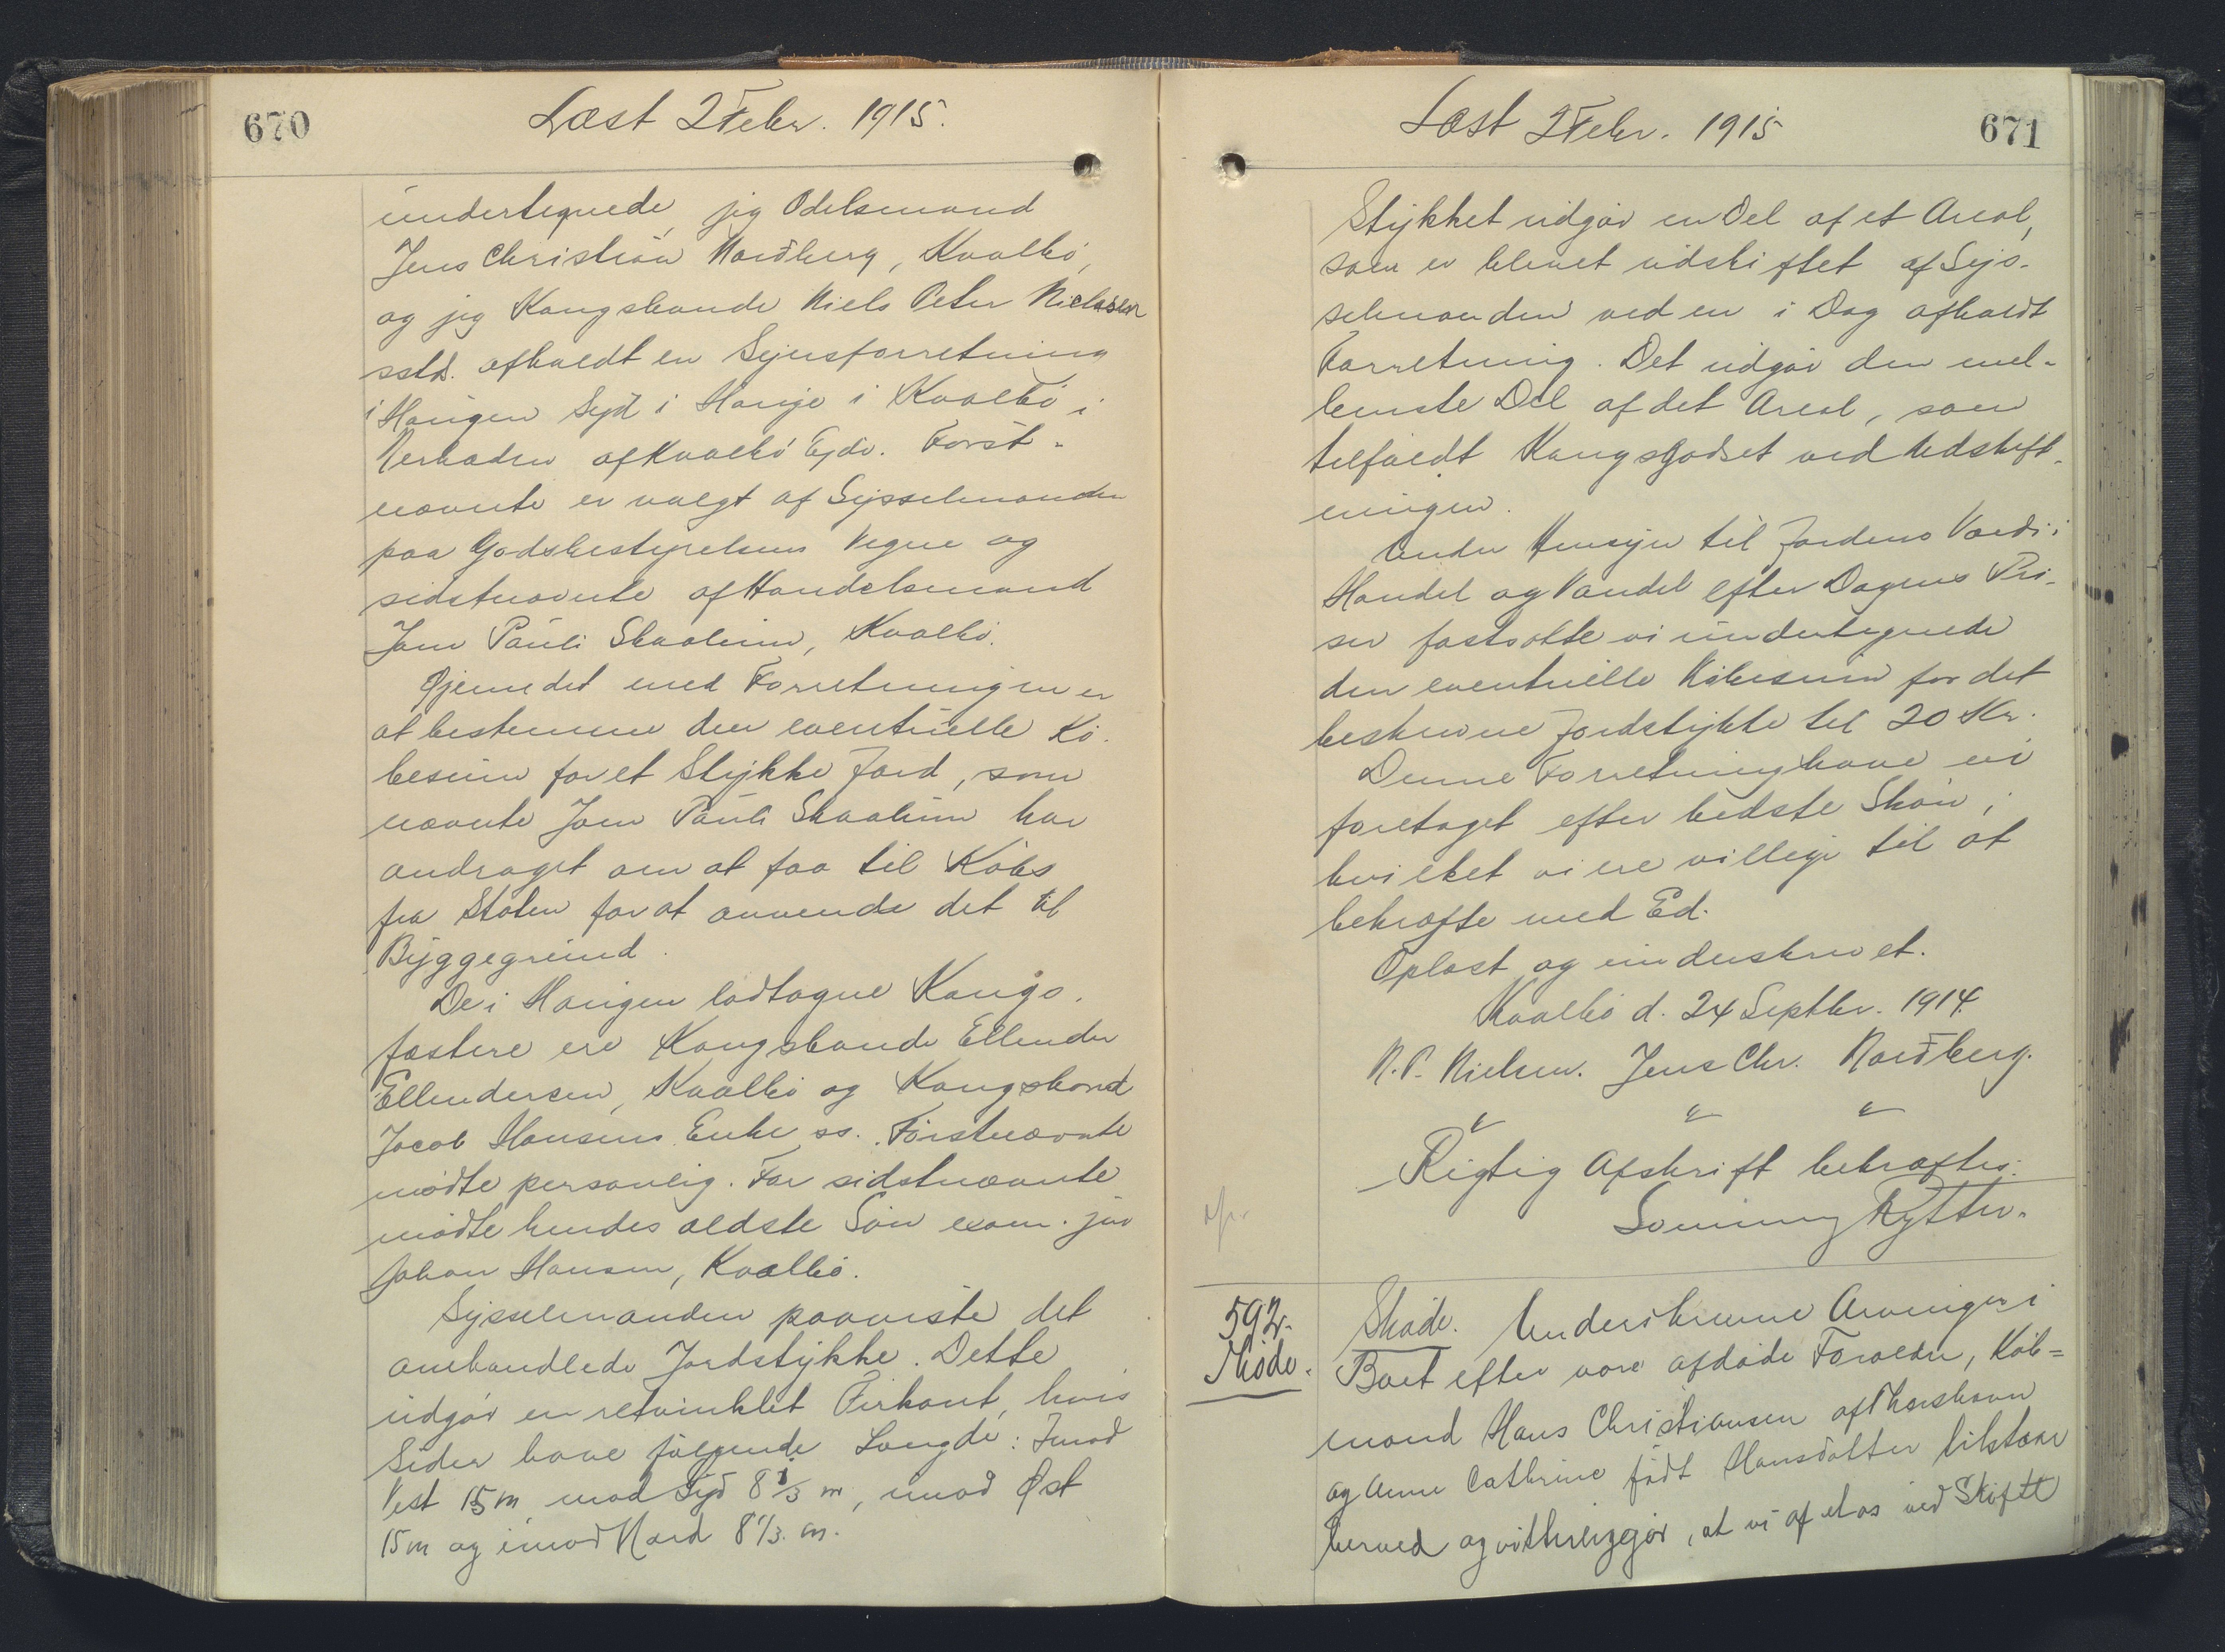 670
Læst 2 Febr. 1915.
undertegnede, jeg Odelsmand
Jens Christian Nordberg, Kvalbø,
og jeg Kongsbonde Niels Peter Nielsen
sstds. afholdt en Synsforretning
i Haugen Syd i Hauge i Kvalbø i
Nærheden af Kvalbø Ejde. Først-
nævnte er valgt af Sysselmanden
paa Godsbestyrelsens Vegne og
sidstnævnte af Handelsmand
Joen Pauli Skaalum, Kvalbø.
Øjemedet med Forretningen er
at bestemme den eventuelle Kø-
besum for et Stykke Jord, som
nævnte Joen Pauli Skaalum har
andraget om at faa til Købs
fra Staten for at anvende det til
Byggegrund.
De i Haugen lodtagne Kongs-
fæstere ere Kongsbonde Ellender
Ellendersen, Kvalbø og Kongsbond
Jacob Hansens Enke ss. Førstnævnte
mødte personlig. For sidstnævnte
mødte hendes ældste Søn exam. jur
Johan Hansen, Kvalbø.
Sysselmanden paaviste det
omhandlede Jordstykke. Dette
udgør en retvinklet Firkant, hvis
Sider have følgende Længde: Imod
Vest 15 m, mod Syd 8 1/3 m, imod Øst
15 m og imod Nord 8 1/3 m.
Læst 2 Febr. 1915
671
Stykket udgør en Del af et Areal,
som er blevet udskiftet af Sys-
selmanden ved en i Dag afholdt
Forretning. Det udgør den mel-
lemste Del af det Areal, som
tilfaldt Kongsgodset ved Udskift-
ningen.
Under Hensyn til Jordens Værdi i
Handel og Vandel efter Dagens Pri-
ser fastsatte vi undertegnede
den eventuelle Købesum for det
beskrevne Jordstykke til 20 Kr.
Denne Forretning have vi
foretaget efter bedste Skøn,
hvilket vi ere villige til at
bekræfte med Ed.
Oplæst og underskrevet.
Kvalbø d. 24 Septbr. 1914.
N. P. Nielsen. Jens Chr. Nordberg.
" " "
Rigtig Afskrift bekræftes:
Sommer Rytter.
592.
Skøde.
Skøde. Underskrevne Arvinger i
Boet efter vore afdøde Forældre, Køb=
mand Hans Christiansen af Thorshavn
og Anne Cathrine født Hansdatter tilstaar
herved og vitterliggør, at vi af et os ved Skifte